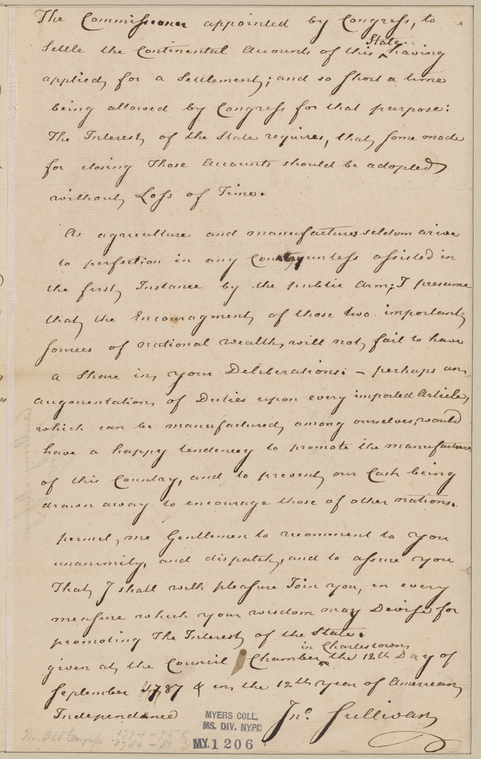 The Commissioner appointed by Congress, to
Settle the Continental Accounts of this State having
applied for a Settlement; and so short a time
being allowed by Congress for that purpose:
The Interest of the State requires, that some mode
for closing Those Accounts should be adopted
without Loss of Time.
As agriculture and manufactures seldom arrive
to perfection in any Country unless assisted in
the first Instance by the public arm; I presume
that the Encouragment of those two important
sources of national wealth, will not fail to have
a Share in your Deliberations: – perhaps an
augmentation of Duties upon every imported Article,
which can be manufactured among ourselves, would
have a happy tendency to promote the manufactures
of this Country, and to prevent our Cash being
drawn away to encourage those of other nations.
permit me Gentlemen to recomment to you
unanimity, and dispatch, and to assure you
That I shall with pleasure Join you, in every
measure which your wisdom may Devise for
promoting The Interest of the State.
given at the Council Chamber in Charlestown the 12th Day of
September 1787 & in the 12th year of American
Independance
Jno. Sullivan
MYERS COLL.
MS. DIV. NYPL
MY. 1206